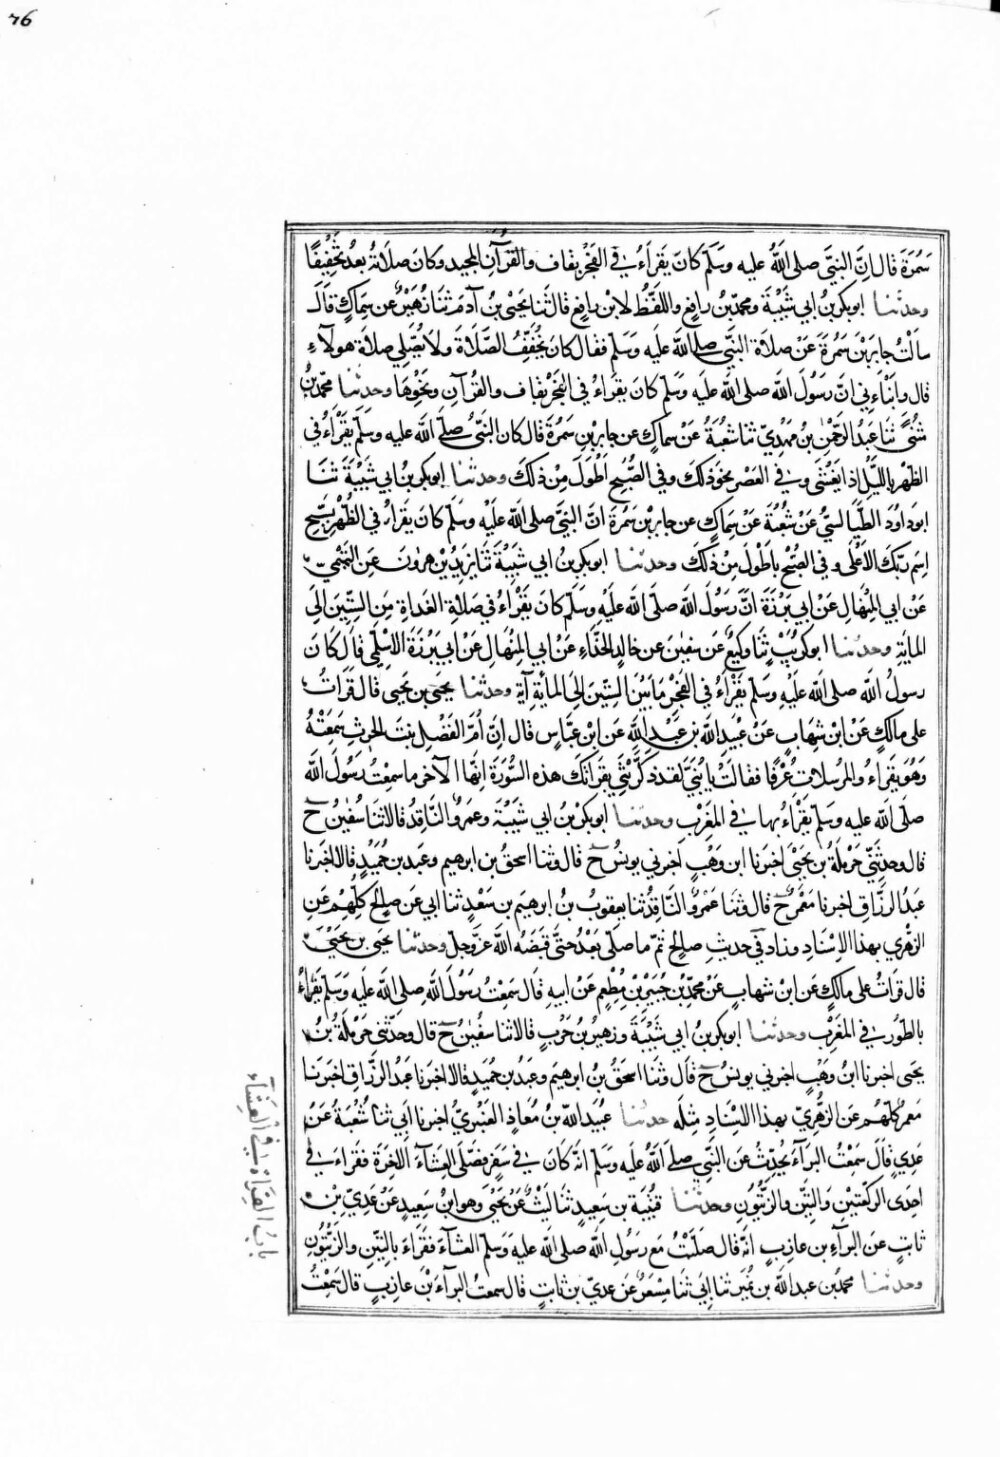 76
سَمُرَةَ قال اِنَّ النبيَّ صلى اللهُ عليه وسَلَّم كانَ يَقرَاءُ في الفَجْرِ بقاف والقُرآنِ المجيد وكانَ صلاتهُ بعدُ تخفِيفًا
وحدثنا ابوبكر بنُ ابي شَيْبَةَ ومحمّدُ بنُ رافِع واللفظُ لابن رافِع قال ثَنا يحيى بن آدمَ ثنا زُهَيْرٌ عن سِماكٍ قَالَ
سالْتُ جابِرَ بْنَ سَمُرَةَ عَنْ صلاةِ النبيِّ صلى الله عليه وسَلَّم فقال كانَ يُخَفِّفُ الصَّلَاةَ ولا يُصَلِّي صلاةَ هولاءِ
قال وانبَاءَني انَّ رَسُولَ الله صلى الله عليه وسَلَّم كانَ يقرَاءُ في الفَجْرِ بقاف والقُرآنِ ونَحْوِهَا وحدثنا محمّدُ بنُ
مُثَنَّى ثنا عَبدُ الرَّحمنِ بنُ مَهْدِيٍّ ثنا شُعْبَةُ عَنْ سِماكٍ عن جابرِ بْنِ سَمُرَةَ قال كان النبيُّ صلى الله عليه وسَلَّم يَقْرَاءُ في
الظهْرِ بالليلِ اذا يَغْشَى وفي العَصْرِ نحوَ ذلكَ وفي الصُّبْحِ اَطْوَلَ مِنْ ذلكَ وحدثنا ابوبكر بنُ ابي شَيْبَةَ ثنَا
ابوداوُدَ الطَّيَالسيُّ عَنْ شُعْبَةَ عَنْ سِماكٍ عن جابرِ بْنِ سَمُرَةَ انَّ النبيَّ صلى الله عليه وسَلَّم كانَ يَقرَاُ في الظُّهْرِ بسَبِّحِ
اسمَ ربِّكَ الاَعْلَى وفي الصُّبْحِ باَطْوَلَ مِنْ ذلكَ وحدثنا ابوبكر بنُ ابي شَيْبَةَ ثنا يزيدُ بْن هرونَ عَنِ التَّيْميِّ
عَنْ ابي المِنْهَالِ عَنْ ابي بَرْزَةَ انَّ رَسُولَ الله صلى الله عليه وسَلَّم كانَ يَقْرَاءُ في صَلاةِ الغَداةِ مِنَ السِّتِّينَ اِلَى
المائةِ وحدثنا ابوكرَيْبٍ ثَنا وكيعٌ عَن سفيٰنَ عن خالدٍ الحَذَّاءِ عَنْ ابي المِنْهالِ عَنْ ابي بَرْزَةَ الاسْلَمِي قال كانَ
رسولُ الله صلى الله عليه وسَلَّم يَقْرَاءُ في الفَجْرِ مابَيْنَ السِّتِّينَ اِلَى المائَةِ آيَةً وحدثنا يحيَى بن يَحيى قال قَرَاتُ
على مالكٍ عَن ابن شِهَابٍ عَنْ عُبَيْدِ اللهِ بن عَبْدِ الله عَن ابْنِ عَبَّاسٍ قال اِنَّ اُمَّ الفَضْلِ بنتَ الحرثِ سَمِعَتْهُ
وَهُوَ يقرَاءُ والمُرسَلاتِ عُرْفًا فقالَتْ يا بُنَيَّ لقد ذَكَّرْتَنِي بقرَاتِكَ هذهِ السُّورَةَ اِنَّها الآخر ما سمِعْتُ رَسُولَ الله
صلى الله عليه وسَلَّم يَقْرَاءُ بها في المَغْرِبِ وحدثنا ابوبكر بْنُ ابي شَيْبَة وعمروٌ النَّاقِدُ قالا ثنا سُفيٰنُ ح
قال وحدثَني حَرْمَلَةُ بنُ يحيَى اخبَرَنا ابن وَهْبٍ اَخبرني يونسُ ح قال وثنا اسحقُ بن ابرهيم وعَبد بن حُمَيْدٍ قالا اخبرنا
عَبدُ الرَّزَّاقِ اخبرنا مَعْمَرٌ ح قال وثنا عَمْرٌو النَّاقِدُ ثنا يعقوبُ بنُ ابرهيم بن سَعْدٍ ثنا ابي عَن صالحٍ كلُّهُم عَنِ
الزهْرِي بهذا الاِسْنَادِ وزاد في حدِيثِ صالحٍ ثُمَّ ما صلَّى بَعْدُ حتَّى قَبَضَهُ اللهُ عَزَّ وجلَّ وحدثنا يحيَى بن يَحيَى
قال قرَاتُ على مالكٍ عَن ابْنِ شهابٍ عَنْ محمّدِ بْن جُبَيْرِ بْنِ مُطْعِمٍ عَنْ ابيهِ قال سَمِعْتُ رَسُولَ الله صلى الله عليه وسَلَّم يَقرَاءُ
بالطّورِ في المغربِ وحدثنا ابوبكر بنُ ابي شَيْبَةَ وزهيرُ بْنُ حَرْبٍ قالا ثنا سفيٰنُ ح قال وحدّثني حرملَةُ بْنُ
يحيى اخبرنا ابنُ وهْبٍ اخبرني يونسُ ح قال وثنا اسحقُ بنُ ابرهيم وعَبدُ بن حميدٍ قالا اخبَرنا عبدُ الرَّزَّاقِ اخبَرنا
مَعمرٌ كلُّهُم عَن الزهْرِيِّ بهذا الاِسْنادِ مِثلَه حدثنا عُبيدُ اللهِ بْنُ مُعاذٍ العَنْبَرِيُّ اخبرنا اَبي ثنا شُعْبَةُ عَنْ
عَدِيٍ قالَ سَمِعْتُ البَرآءَ يُحدِّثُ عَن النَّبي صلى الله عليه وسَلَّم انّهُ كانَ في سَفَرٍ فصَلَّى العِشآءَ الآخِرَةَ فقرَاءَ في
احدَى الركعَتيْنِ وَالتِّينِ والزَّيْتُونِ وحدثنا قتَيْبَة بن سَعيدٍ ثنا لَيْثٌ عَنْ يحيى وهو ابن سَعِيدٍ عَنْ عَدِيِّ بْنِ
ثابتٍ عَن البَرآءِ بن عازبٍ انّهُ قال صَلَّيْتُ مَع رَسُولِ الله صلى الله عليه وسَلَّم العشآءَ فقَرَاءَ بالتِّينِ والزَّيْتُونِ
وحدثنا محمّد بن عبدالله بن نُمَيْر ثنا ابي ثنا مِسْعَرٌ عَن عدِيّ بن ثابتٍ قال سمعتُ البرآءَ بْنَ عازبٍ قال سَمِعْتُ
بابُ القِراءةِ في العِشَآء